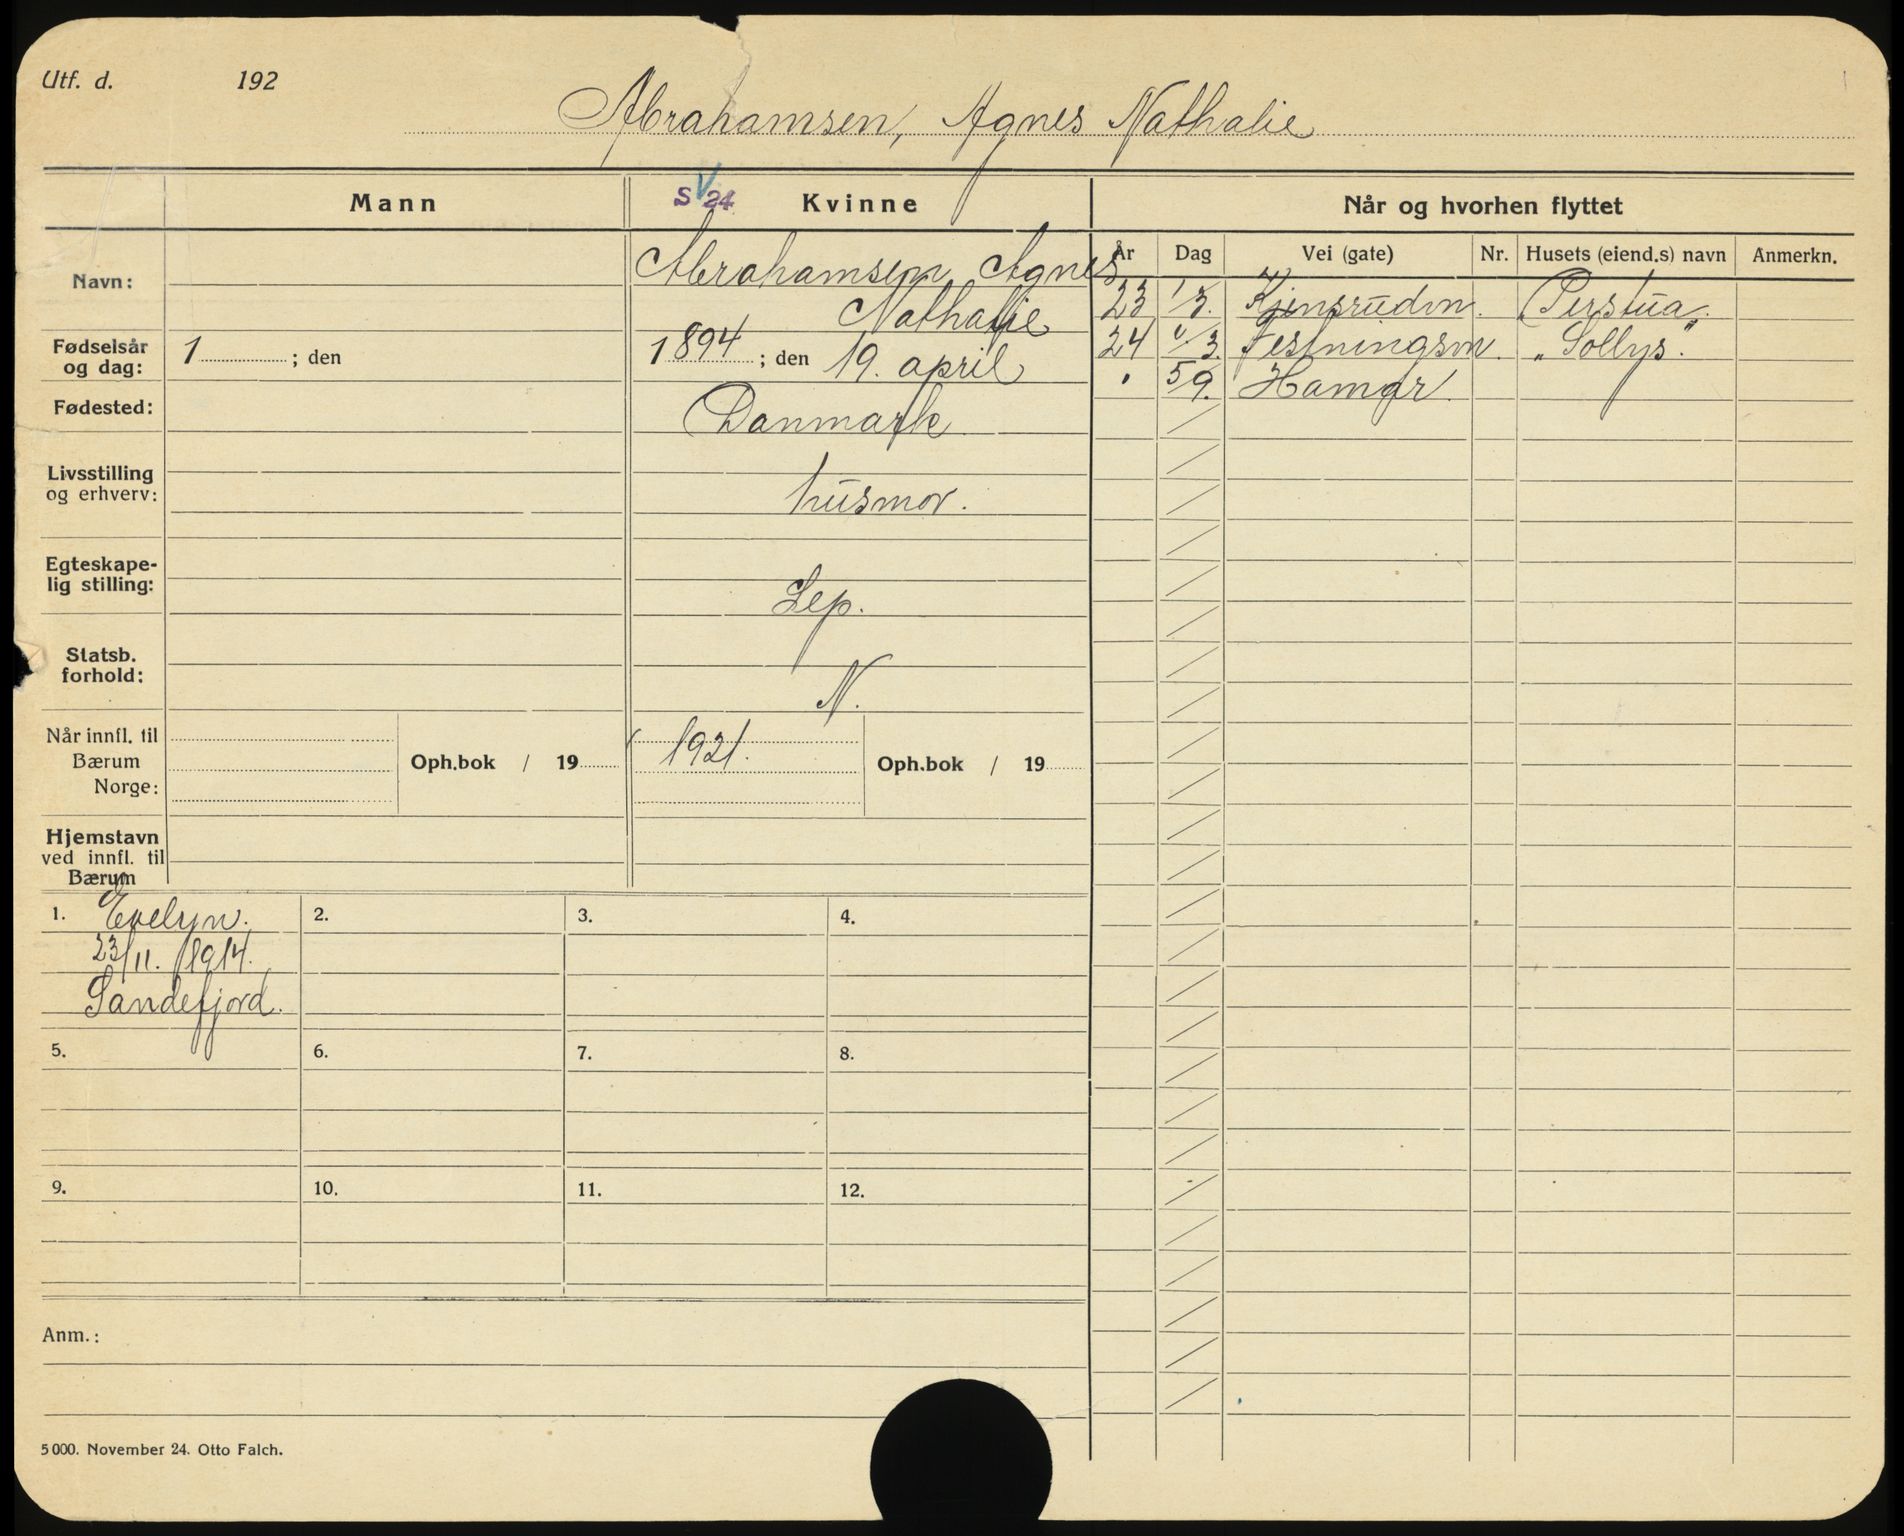 Utf. d. 192
Abrahamsen, Agnes Nathalie
Mann
S V 24
Kvinne
Når og hvorhen flyttet
År Dag Vei (gate) Nr. Husets (eiend.s) navn Anmerkn.
Navn:
Abrahamsen, Agnes
Nathalie
Fødselsår
og dag:
1 ; den
1894 ; den 19. april
Fødested:
Danmark
Livsstilling
og erhverv:
husmor.
Egteskape-
lig stilling:
Sep.
Statsb.
forhold:
N.
Når innfl. til
Bærum
Norge:
Oph.bok / 19
1921.
Oph.bok / 19
Hjemstavn
ved innfl. til
Bærum
23 1/3. "Perstua".
24 /3. Festningsvn. "Sollys".
" 5/9. Hamar.
1. Evelyn.
23/11. 1914.
Sandefjord.
2.
3.
4.
5.
6.
7.
8.
9.
10.
11.
12.
Anm.:
5000. November 24. Otto Falch.